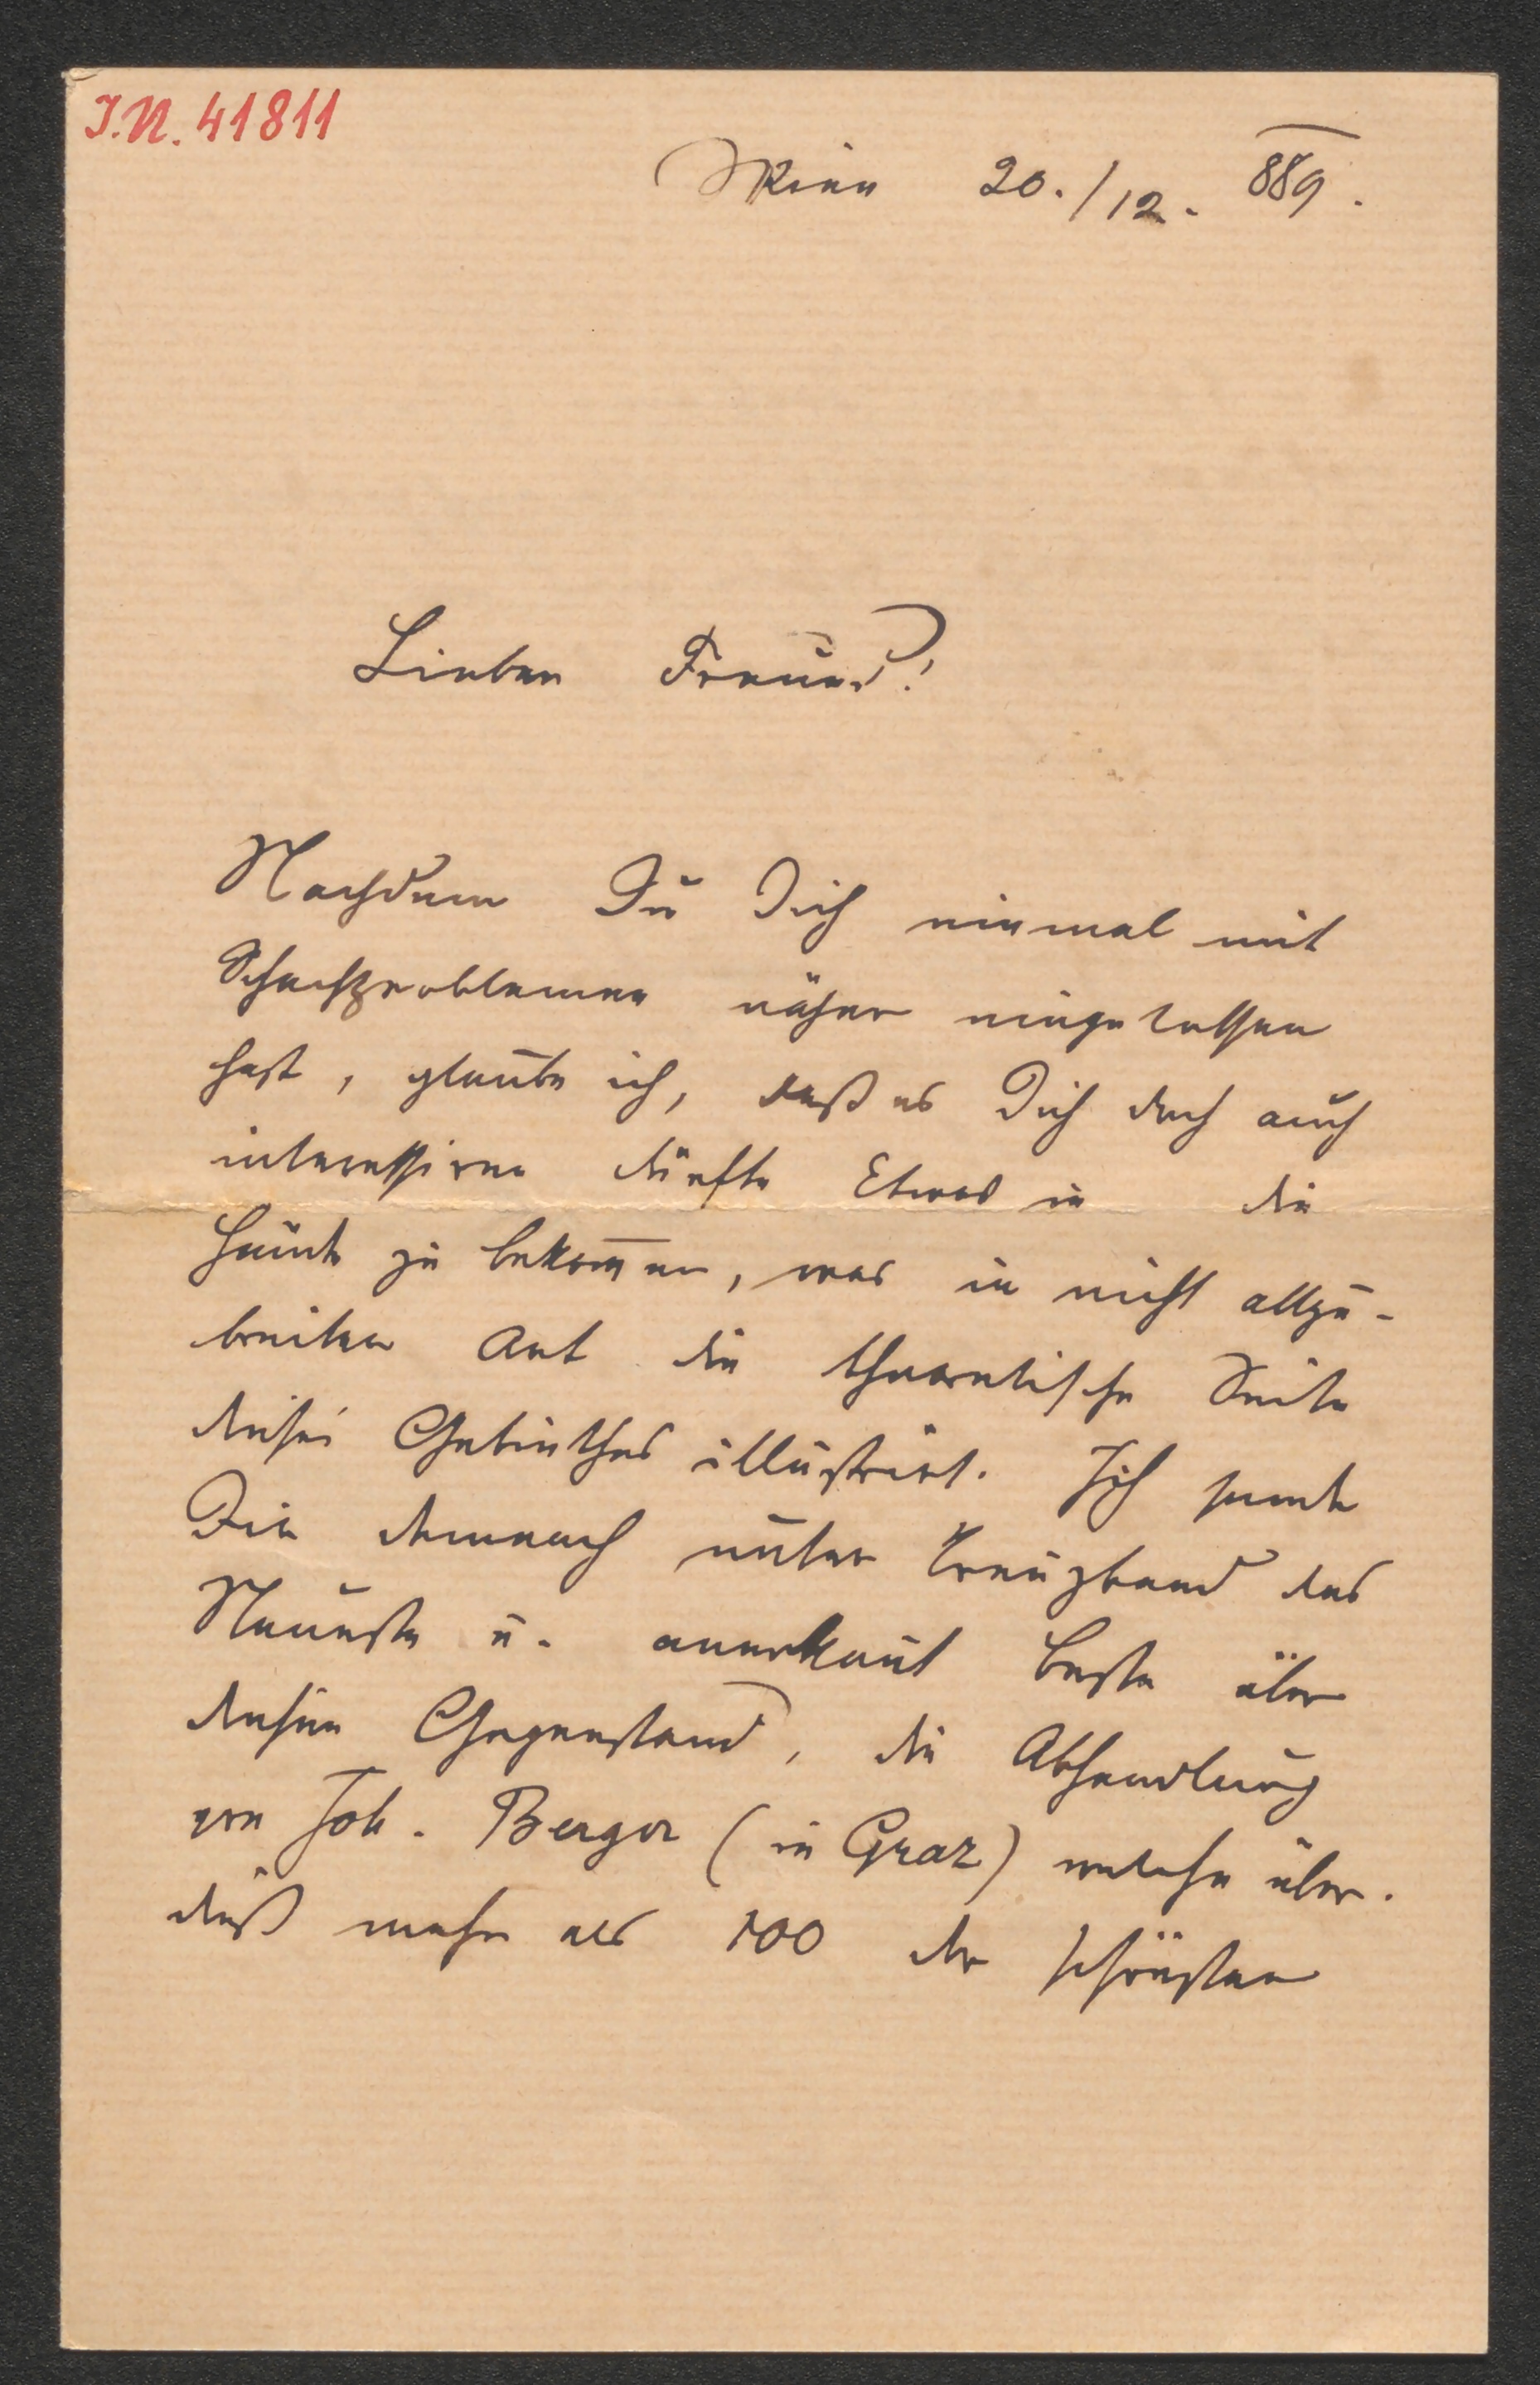 I.N. 41811
Wien 20./12. 889.
Lieber Freund!
Nachdem Du Dich einmal mit
Schachproblemen näher eingelassen
hast, glaube ich, daß es Dich doch auch
interessiren dürfte Etwas in die
Hände zu bekommen, was in nicht allzu-
breiter Art die theoretische Seite
dieses Gebiethes illustrirt. Ich sende
Dir demnach unter Kreuzband das
Neueste u. anerkannt Beste über
diesen Gegenstand, die Abhandlung
von Joh. Berger (in Graz) welche über-
dieß mehr als 100 der schönsten